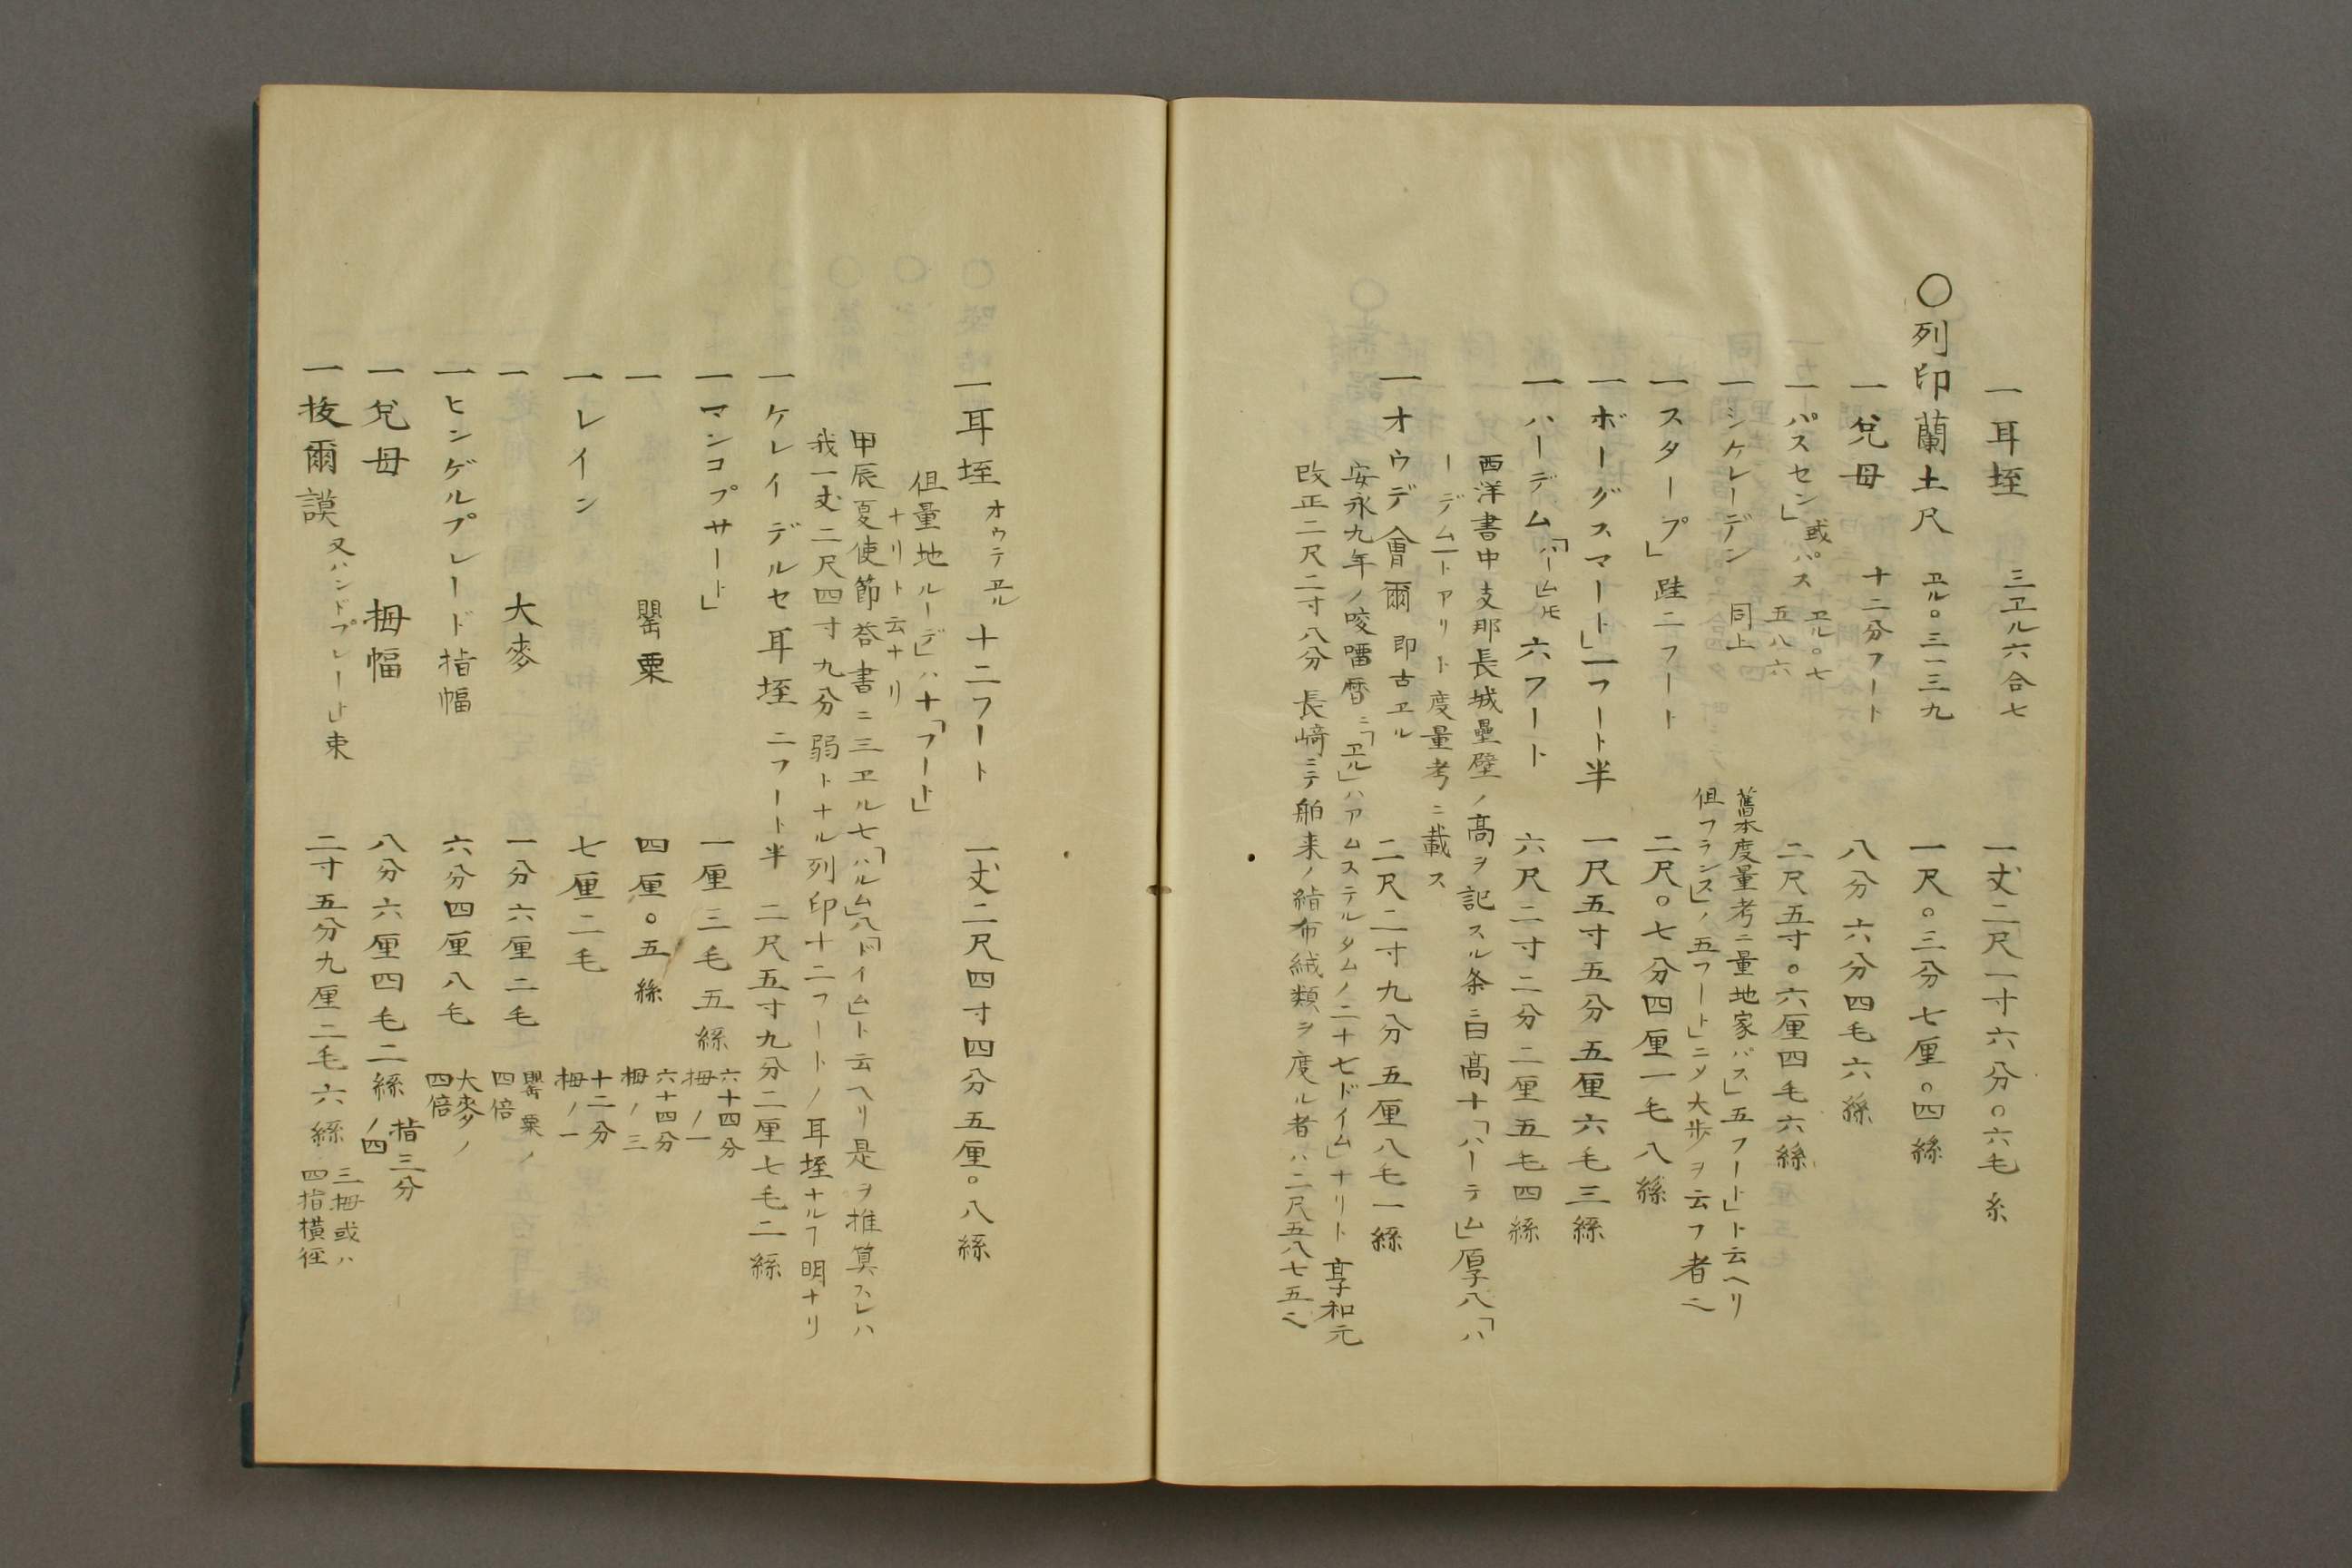 一耳垤　三ヱル六合七　一丈二尺一寸六分〇六毛糸
〇列印蘭土尺　ヱル〇三一三九　一尺〇三分七厘〇四絲
一兊母　十二分フート　八分六分四毛六絲
一パスセン」或パス　ヱル〇七五八六　二尺五寸〇六厘四毛六絲
一シケレーデン　同上　舊本度量考ニ量地家「パス」五フート」ト云ヘリ
但フランス」ノ五フート」ニメ大歩ヲ云フ者ニ
一スタープ」跬二フート　二尺〇七分四厘一毛八絲
一ボーグスマート」一フート半　一尺五寸五分五厘六毛三絲
一ハーデム「ハーム」トモ　六フート　六尺二寸二分二厘五毛四絲
西洋書中支那長城壘壁ノ高ヲ記スル条ニ曰高十「ハーテム」厚八「ハ
ーデムートアリト度量考ニ載ス
一オウデ會爾　即古ヱル　二尺二寸九分五厘八毛一絲
安永九年ノ咬𠺕暦ニ「ヱル」ハアムステルタムノ二十七ドイム」ナリト享和元
改正二尺二寸八分　長﨑ニテ舶来ノ絹布絨類ヲ度ル者ハ二尺五八七五ニ
一耳垤　オウテヱル　十二フート　一丈二尺四寸四分五厘〇八絲
但量地ルーデ」ハ十「フート」
ナリト云ナリ
甲辰夏使節荅書ニ三ヱル七「ハルム」八「ドイム」ト云ヘリ是ヲ推算スレハ
我一丈二尺四寸九分弱トナル列印十二フートノ耳垤ナルヿ明ナリ
一ケレイデルセ耳垤　二フート半　二尺五寸九分二厘七毛二絲
一マンコプサート」　一厘三毛五絲　六十四分拇ノ一
一　罌粟　四厘〇五絲　六十四分拇ノ三
一レイン　七厘二毛　十二分拇ノ一
一　大麥　一分六厘二毛　罌粟ノ四倍
一ヒンゲルプレード指幅　六分四厘八毛　大麥ノ四倍
一兊母　拇幅　八分六厘四毛二絲　指三分ノ四
一拔爾謨　又ハンドプレート」束　二寸五分九厘二毛六絲　三拇或ハ四指横径